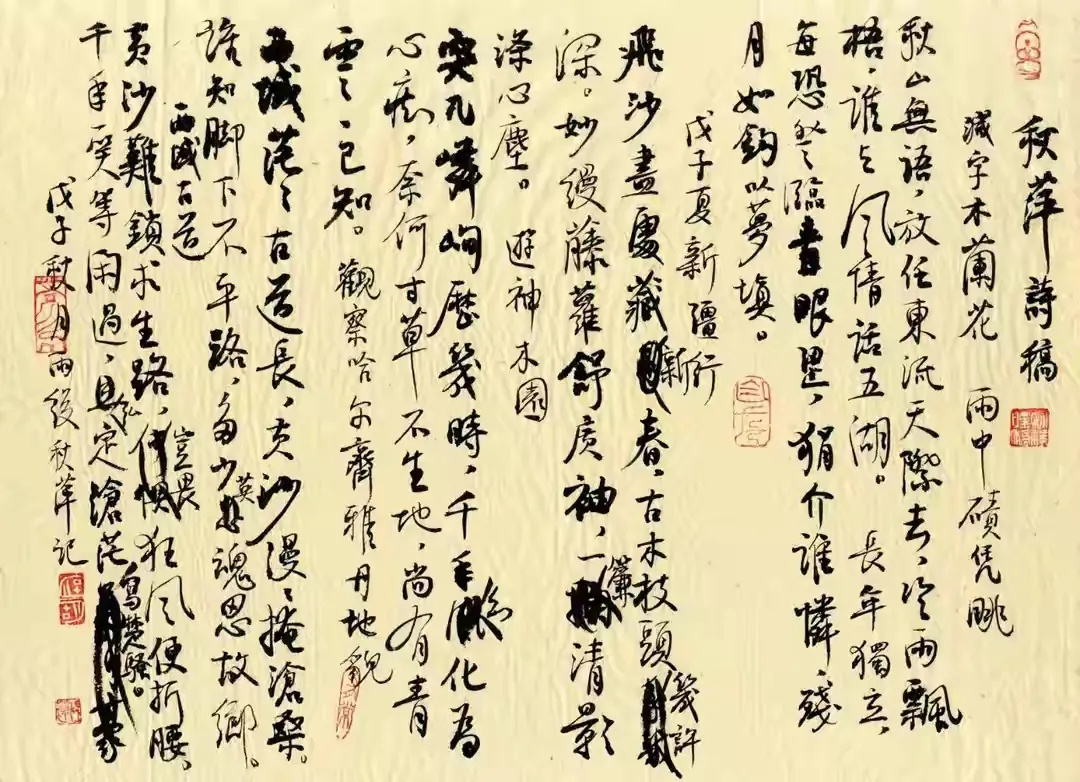 秋萍詩稿
減字木蘭花 雨中磧凭眺
秋山無語，放任東流天際去，冷雨飄
梧，誰與風情話五湖。長年獨立，
每恐登臨青眼里，狷介誰憐，殘
月如鈎以夢填。
戊子夏新疆新行
飛沙盡處藏春，古木枝頭幾許
深。妙縵藤蘿舒廣袖，一簾清影
滌心塵。遊神木園
突兀嶙峋歷幾時，千年化為
心痴，奈何寸草不生地，尚有青
雲已知。觀察哈尔齊雅丹地貌
西域茫茫古道長，黄沙漫漫掩滄桑。
誰知脚下不平路，多少英魂思故鄉。
西域古道
黄沙難鎖求生路，豈畏狂風便折腰。
千年笑等閑過，定滄茫寫楚騷。
戊子秋月雨後秋萍記